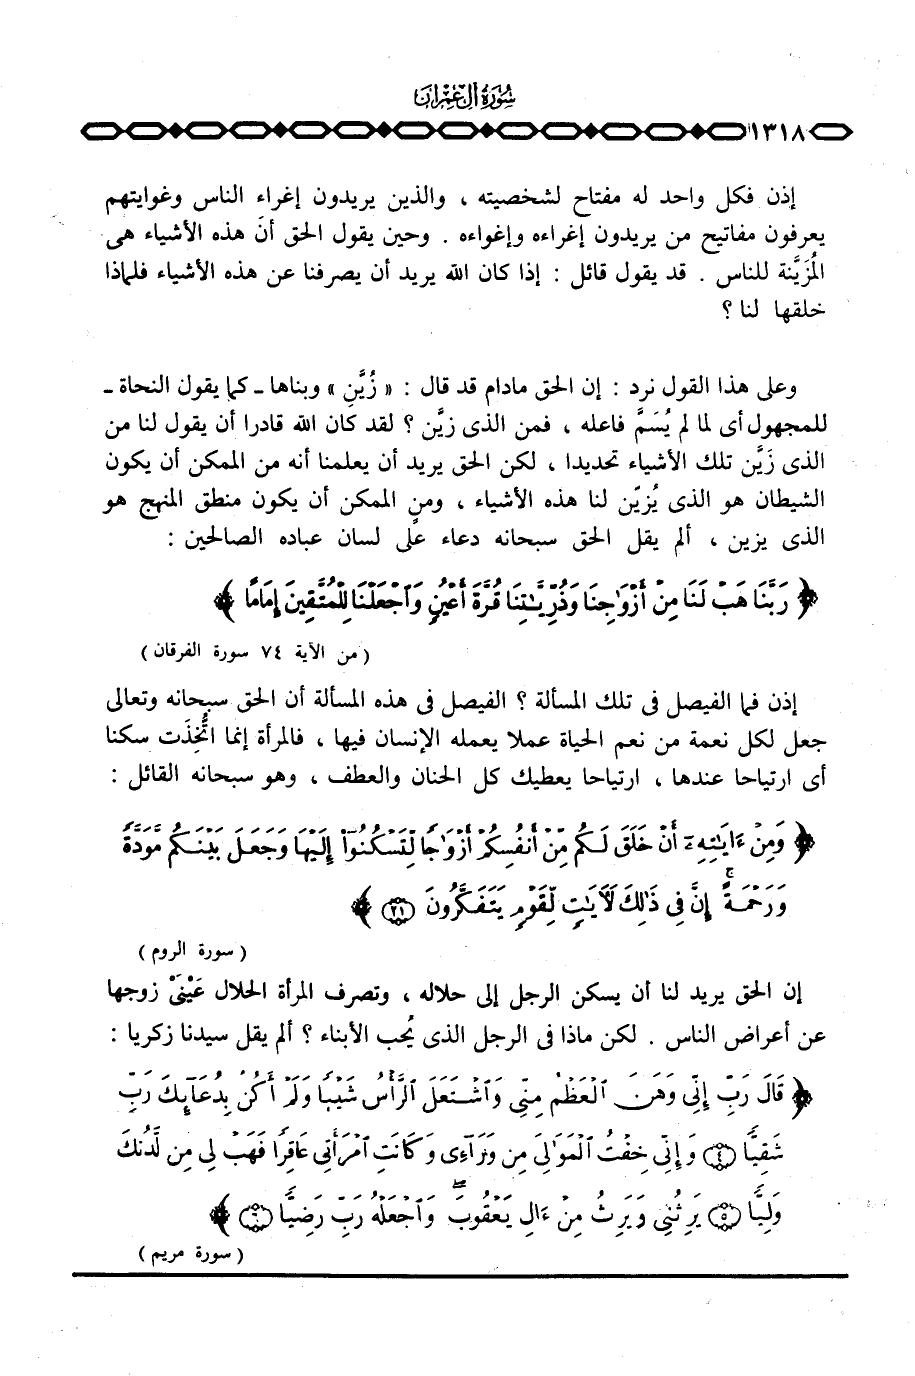 سُورَةُ آلِ عِمْرَانَ
١٣١٨
إذن فكل واحد له مفتاح لشخصيته ، والذين يريدون إغراء الناس وغوايتهم
يعرفون مفاتيح من يريدون إغراءه وإغواءه . وحين يقول الحق أنَ هذه الأشياء هى
المُزَيَّنة للناس . قد يقول قائل : إذا كان الله يريد أن يصرفنا عن هذه الأشياء فلماذا
خلقها لنا ؟
وعلى هذا القول نرد : إن الحق مادام قد قال : « زُيَّن » وبناها ـ كما يقول النحاة ـ
للمجهول أى لما لم يُسَمَّ فاعله ، فمن الذى زيَّن ؟ لقد كان الله قادرا أن يقول لنا من
الذى زَيَّن تلك الأشياء تحديدا ، لكن الحق يريد أن يعلمنا أنه من الممكن أن يكون
الشيطان هو الذى يُزيّن لنا هذه الأشياء ، ومن الممكن أن يكون منطق المنهج هو
الذى يزين ، ألم يقل الحق سبحانه دعاء على لسان عباده الصالحين :
﴿ رَبَّنَا هَبْ لَنَا مِنْ أَزْوَٰجِنَا وَذُرِّيَّٰتِنَا قُرَّةَ أَعْيُنٍ وَٱجْعَلْنَا لِلْمُتَّقِينَ إِمَامًا ﴾
( من الآية ٧٤ سورة الفرقان )
إذن فما الفيصل فى تلك المسألة ؟ الفيصل فى هذه المسألة أن الحق سبحانه وتعالى
جعل لكل نعمة من نعم الحياة عملا يعمله الإنسان فيها ، فالمرأة إنما اتُّخِذَت سكنا
أى ارتياحا عندها ، ارتياحا يعطيك كل الحنان والعطف ، وهو سبحانه القائل :
﴿ وَمِنْ ءَايَٰتِهِۦٓ أَنْ خَلَقَ لَكُم مِّنْ أَنفُسِكُمْ أَزْوَٰجًا لِّتَسْكُنُوٓا۟ إِلَيْهَا وَجَعَلَ بَيْنَكُم مَّوَدَّةً
وَرَحْمَةً ۚ إِنَّ فِى ذَٰلِكَ لَءَايَٰتٍ لِّقَوْمٍ يَتَفَكَّرُونَ ٢١ ﴾
( سورة الروم )
إن الحق يريد لنا أن يسكن الرجل إلى حلاله ، وتصرف المرأة الحلال عَيْنَىْ زوجها
عن أعراض الناس . لكن ماذا فى الرجل الذى يُحب الأبناء ؟ ألم يقل سيدنا زكريا :
﴿ قَالَ رَبِّ إِنِّى وَهَنَ ٱلْعَظْمُ مِنِّى وَٱشْتَعَلَ ٱلرَّأْسُ شَيْبًا وَلَمْ أَكُنۢ بِدُعَآئِكَ رَبِّ
شَقِيًّا ٤ وَإِنِّى خِفْتُ ٱلْمَوَٰلِىَ مِن وَرَآءِى وَكَانَتِ ٱمْرَأَتِى عَاقِرًا فَهَبْ لِى مِن لَّدُنكَ
وَلِيًّا ٥ يَرِثُنِى وَيَرِثُ مِنْ ءَالِ يَعْقُوبَ ۖ وَٱجْعَلْهُ رَبِّ رَضِيًّا ٦ ﴾
( سورة مريم )